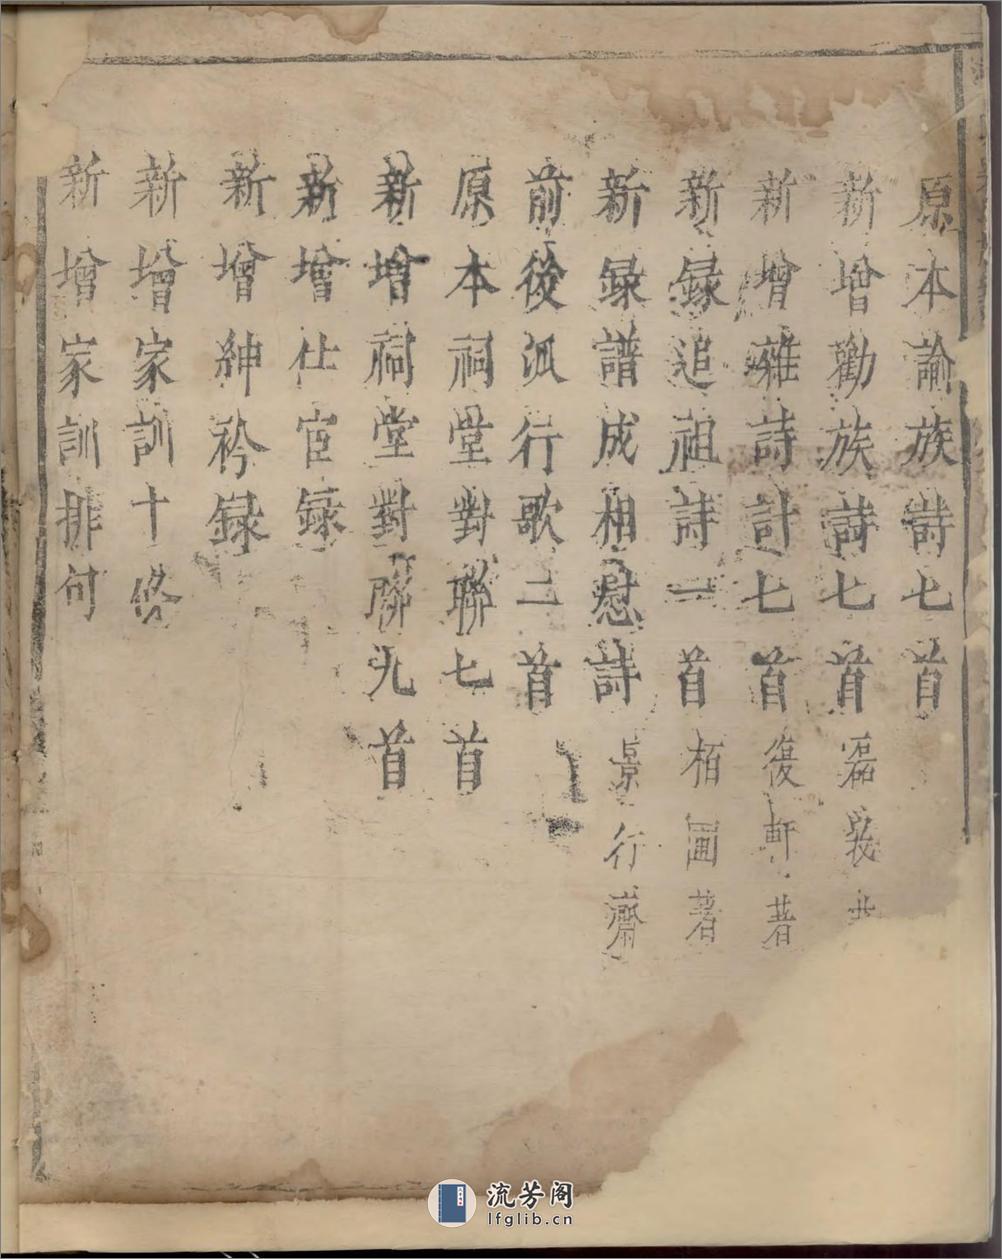 原本諭族詩七首
新增勸族詩七首 磊
新增雜詩計七首 復軒著
新錄追祖詩一首 栢圃著
新錄譜成相慰詩 景行齋
前後派行歌二首
原本祠堂對聯七首
新增祠堂對聯九首
新增仕宦錄
新增紳衿錄
新增家訓十條
新增家訓排句
流芳阁
lfglib.cn